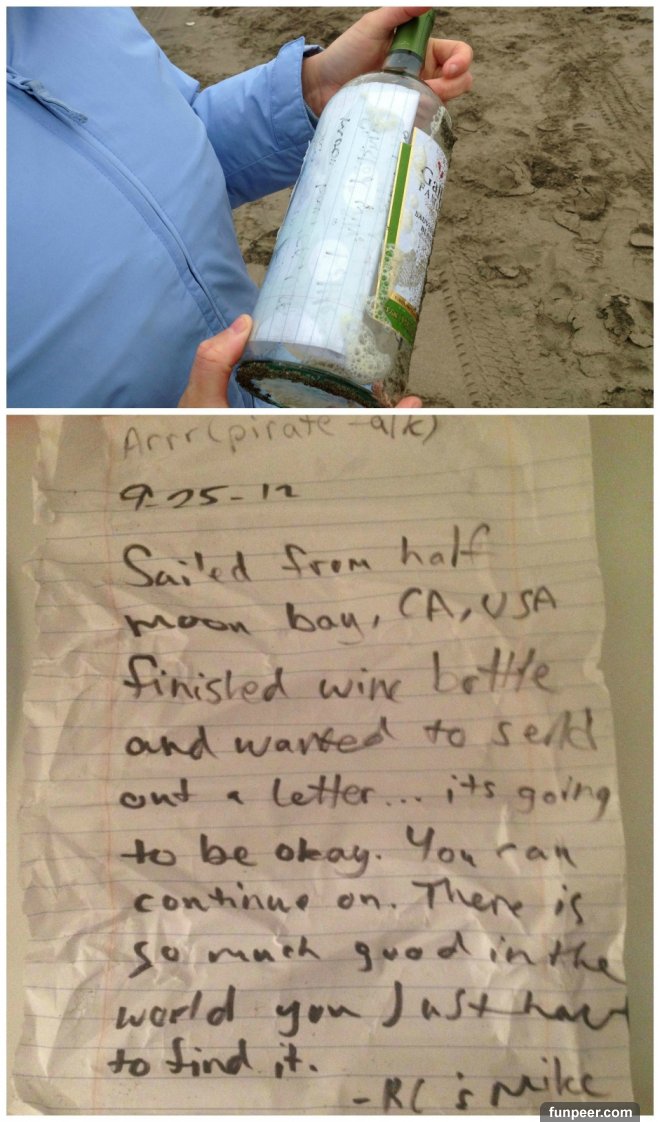 Ga
PA
Arrr (pirate talk)
9-25-12
Sailed from half
moon bay, CA, USA
finished wine bottle
and wanted to send
out a letter... its going
to be okay. You can
continue on. There is
so much good in the
world you Just have
to find it.
- RC is Mike
funpeer.com